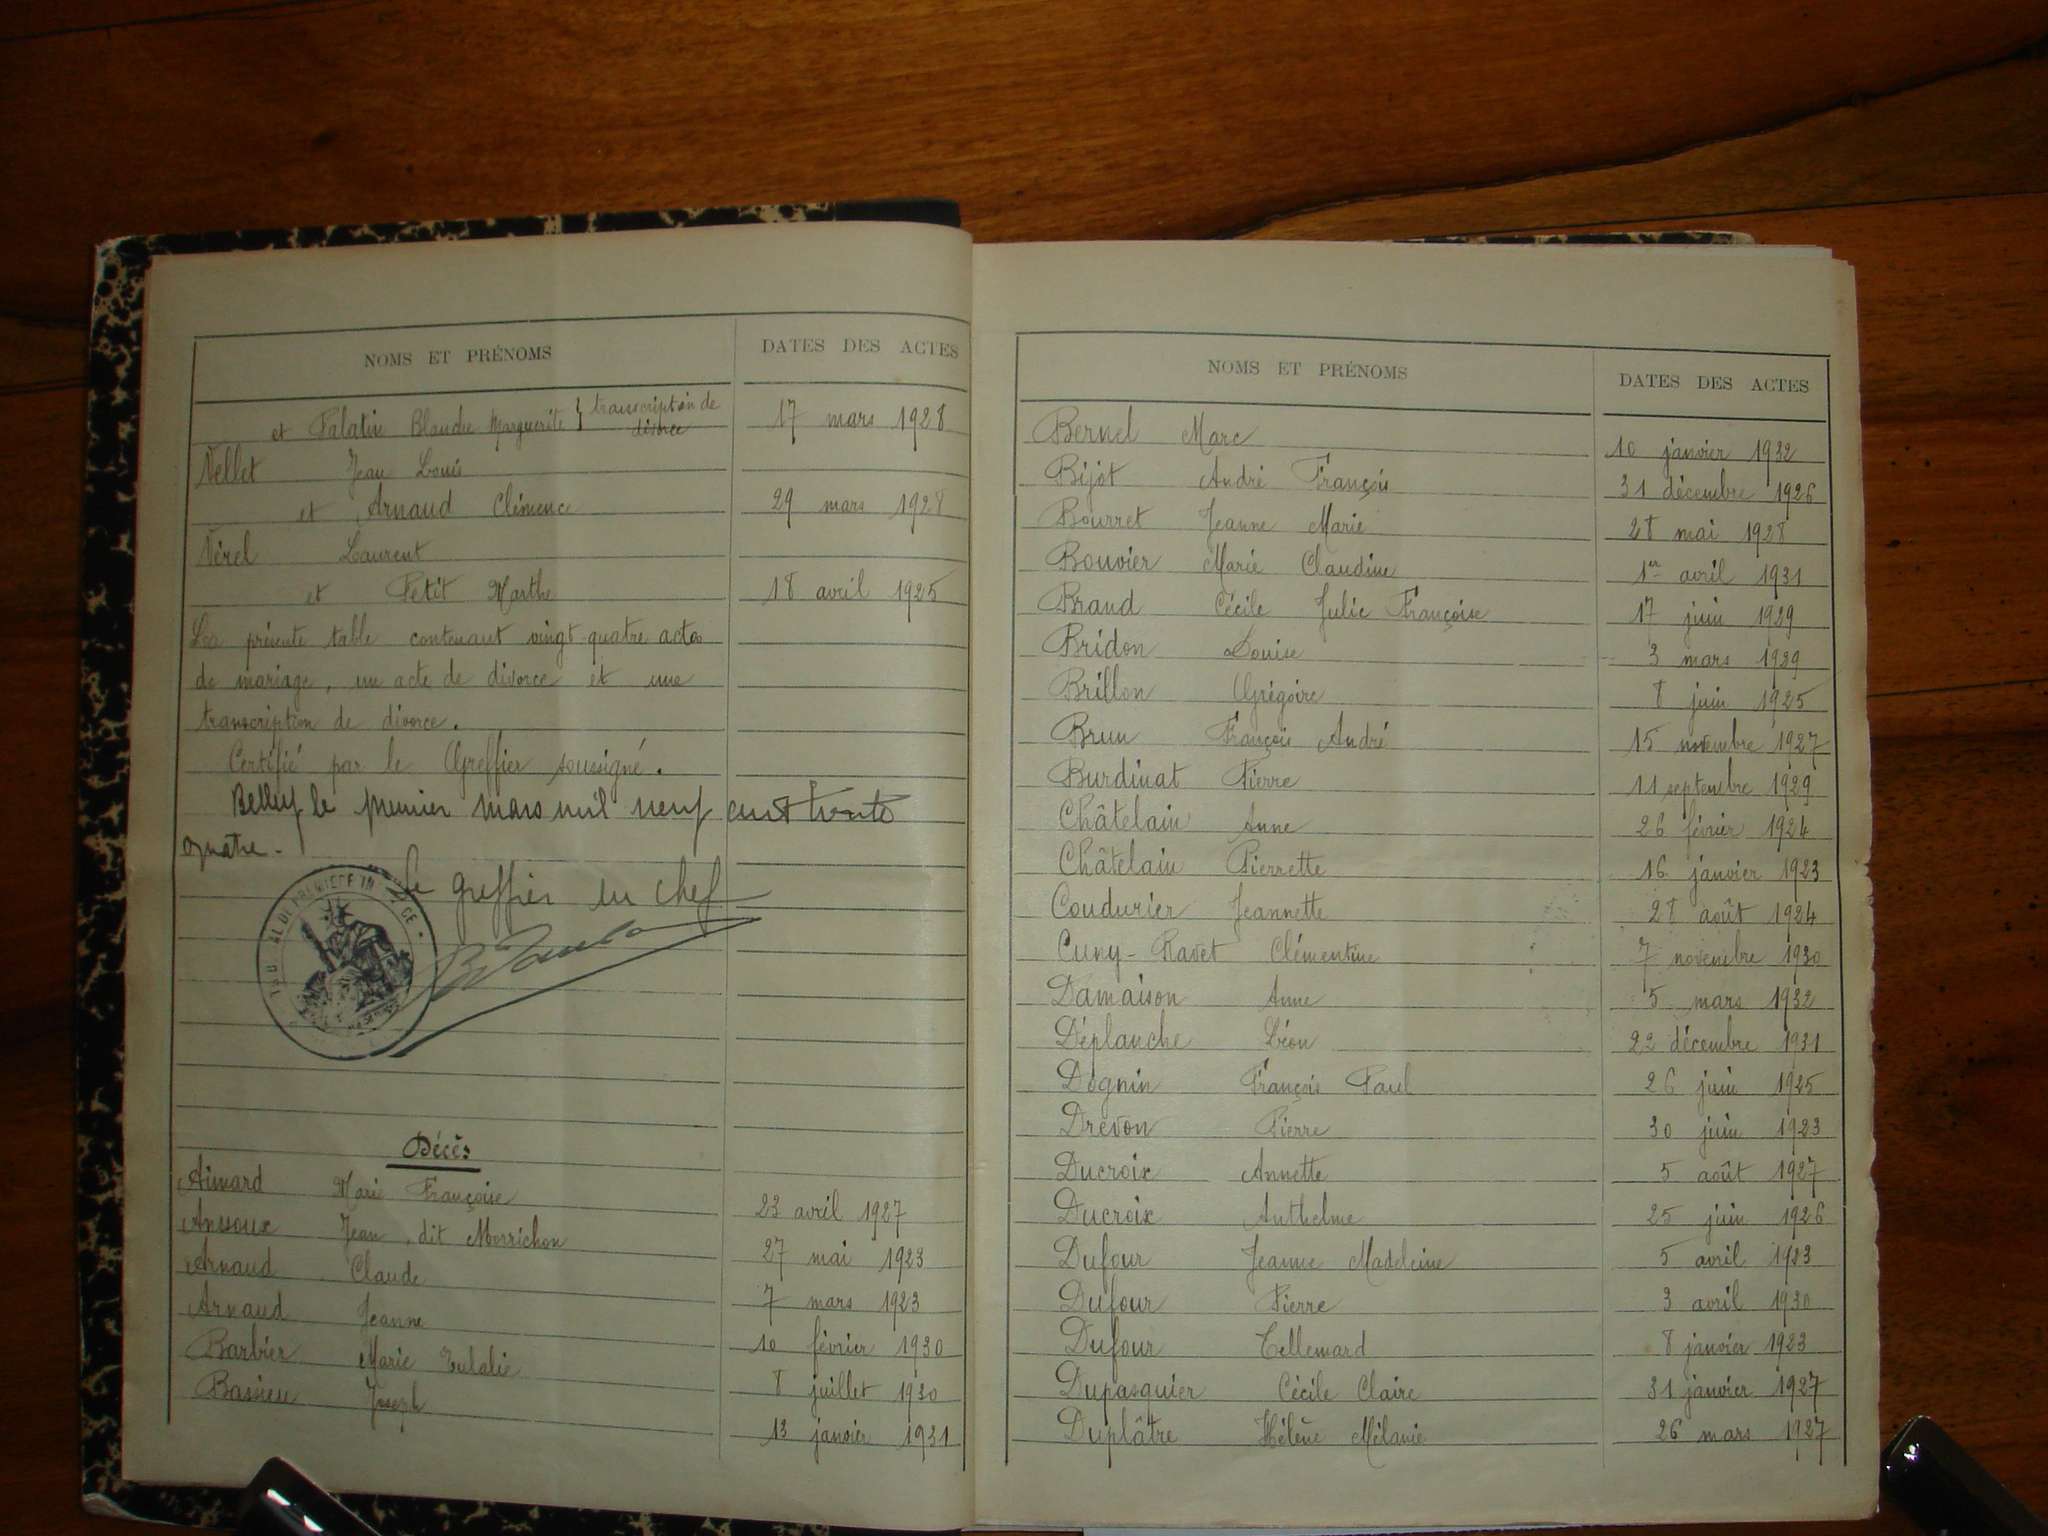 NOMS ET PRÉNOMS DATES DES ACTES
et Palatin Blanche Marguerite } transcription de divorce 17 mars 1928
Vellet Jean Louis
et Arnaud Clémence 29 mars 1928
Vérel Laurent
et Petit Marthe 18 avril 1925
La présente table contenant vingt-quatre actes
de mariage, un acte de divorce et une
transcription de divorce.
Certifié par le Greffier soussigné.
Belley le premier mars mil neuf cent trente
quatre.
Le greffier en chef
Décès
Aimard Marie Françoise 23 avril 1927
Anssoux Jean, dit Morrichon 27 mai 1923
Arnaud Claude 7 mars 1923
Arnaud Jeanne 10 février 1930
Barbier Marie Eulalie 8 juillet 1930
Bassieu Joseph 13 janvier 1931
NOMS ET PRÉNOMS DATES DES ACTES
Bernel Marc 10 janvier 1932
Bijot André François 31 décembre 1926
Bourret Jeanne Marie 28 mai 1928
Bouvier Marie Claudine 1er avril 1931
Brand Cécile Julie Françoise 17 juin 1929
Bridon Louise 3 mars 1929
Brillon Grégoire 8 juin 1925
Brun François André 15 novembre 1927
Burdinat Pierre 11 septembre 1929
Châtelain Anne 26 février 1924
Châtelain Pierrette 16 janvier 1923
Coudurier Jeannette 28 août 1924
Cuny-Ravet Clémentine 7 novembre 1930
Damaison Anne 5 mars 1932
Déplanche Léon 22 décembre 1931
Dognin François Paul 26 juin 1925
Drevon Pierre 30 juin 1923
Ducroix Annette 5 août 1927
Ducroix Anthelme 25 juin 1926
Dufour Jeanne Madeleine 5 avril 1923
Dufour Pierre 3 avril 1930
Dufour Tellemard 8 janvier 1923
Dupasquier Cécile Claire 31 janvier 1927
Duplâtre Hélène Mélanie 26 mars 1927